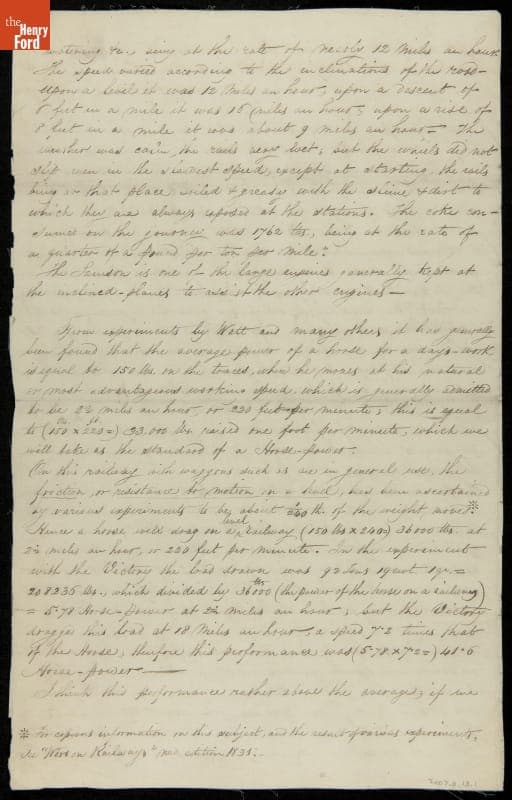 the
Henry
Ford
watering &c., being at the rate of nearly 12 miles an hour.
The speed varied according to the inclinations of the road
upon a level it was 12 miles an hour, upon a descent of
feet in a mile it was 16 miles an hour, upon a rise of
8 feet in a mile it was about 9 miles an hour. The
weather was calm the rails very wet, but the wheels did not
slip even in the slowest speed, except at starting, the rails
being at that place soiled & greasy with the slime & dirt to
which they are always exposed at the stations. The coke con-
sumed on the journey was 1762 lbs, being at the rate of
a quarter of a pound per ton per mile"
The Samson is one of the large engines generally kept at
the inclined-planes to assist the other engines—
From experiments by Watt and many others it has generally
been found that the average power of a horse for a days-work
is equal to 150 lbs on the traces, when he moves at his natural
or most advantageous working speed, which is generally admitted
to be 2½ miles an hour, or 220 feet per minute; this is equal
to (150 lbs x 220 ft =) 33.000 lbs raised one foot per minute, which we
will take as the standard of a Horse-power.
On this railway with waggons such as are in general use, the
friction, or resistance to motion on a level, has been ascertained
by various experiments to be about 1/240 th. of the weight moved. *
Hence a horse will drag on a level Railway (150 lbs x 240=) 36000 lbs. at
2½ miles an hour, or 220 feet per minute. In the experiment
with the Victory the load drawn was 92 tons 19 cwt 1 qr. =
208236 lbs., which divided by 36000 lbs (the power of the horse on a railway)
= 5.78 Horse-power at 2½ miles an hour, but the Victory
dragged this load at 18 miles an hour, a speed 7.2 times that
of the Horse, therefore this performance was (5.78 x 7.2=) 41.6
Horse-power—
I think this performance rather above the average; if we
* For copious information on this subject, and the result of various experiments,
See "Wood on Railways" new edition 1831.